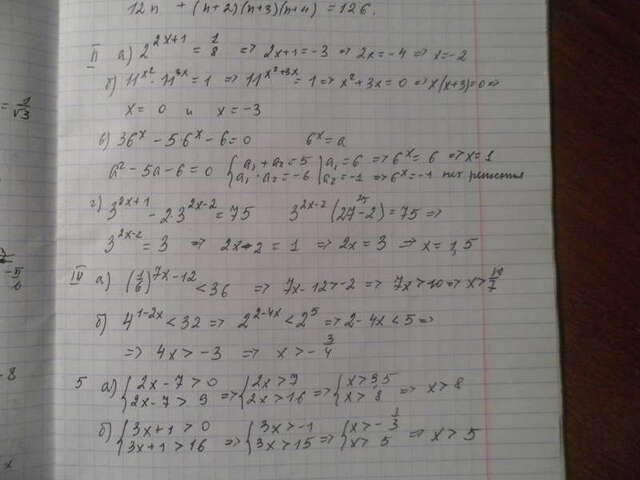 12n + (n+2)(n+3)(n+4) = 126.
II а) 2^(2x+1) = 1/8 => 2x+1 = -3 => 2x = -4 => x = -2
б) 11^(x²) · 11^(3x) = 1 => 11^(x²+3x) = 1 => x² + 3x = 0 => x(x+3) = 0 =>
x = 0 и x = -3
в) 36^x - 5·6^x - 6 = 0 6^x = a
a² - 5a - 6 = 0 { a₁ + a₂ = 5 | a₁ = 6 => 6^x = 6 => x = 1
a₁ · a₂ = -6 | a₂ = -1 => 6^x = -1 нет решения
г) 3^(2x+1) - 2·3^(2x-2) = 75 3^(2x-2) (27-2) = 75 =>
25
3^(2x-2) = 3 => 2x-2 = 1 => 2x = 3 => x = 1,5
IV а) (1/6)^(7x-12) < 36 => 7x-12 > -2 => 7x > 10 => x > 10/7
б) 4^(1-2x) < 32 => 2^(2-4x) < 2^5 => 2-4x < 5 =>
=> 4x > -3 => x > -3/4
5 а) { 2x - 7 > 0 => { 2x > 7 => { x > 3,5 => x > 8
2x - 7 > 9 2x > 16 x > 8
б) { 3x + 1 > 0 => { 3x > -1 => { x > -1/3 => x > 5
3x + 1 > 16 3x > 15 x > 5
= 1/√3
-5
6
-8
x